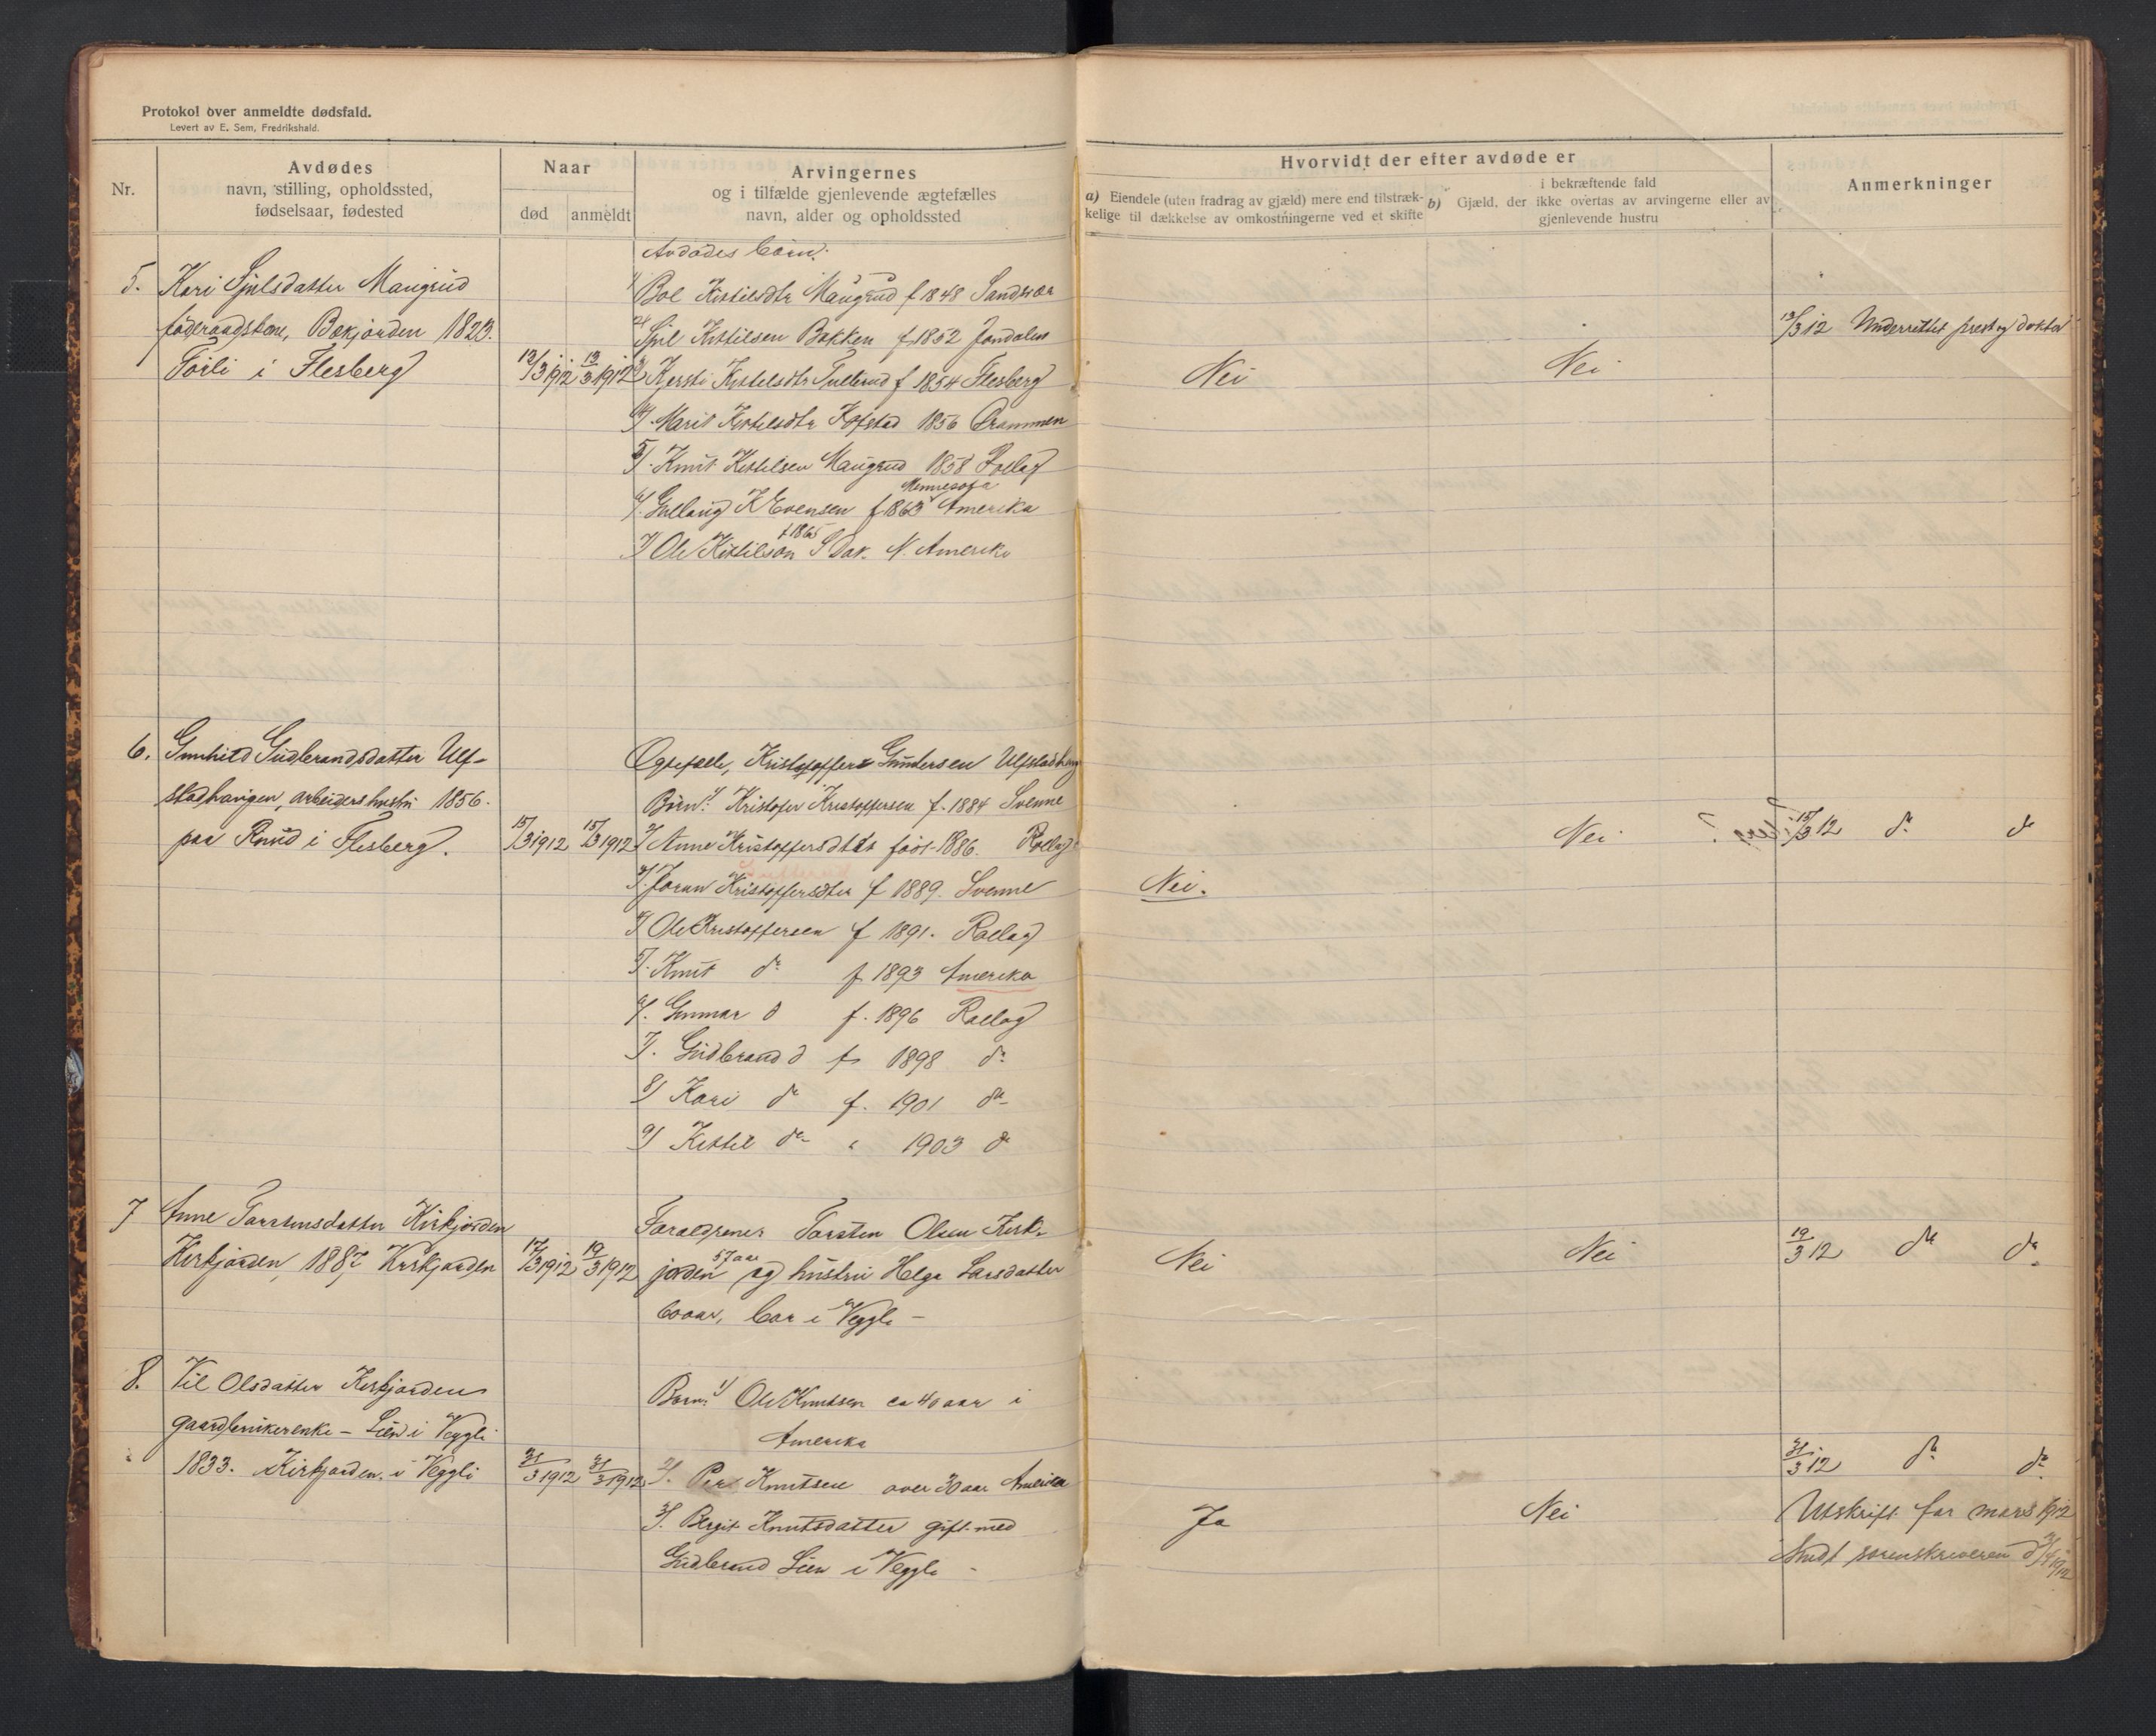 Protokol over anmeldte dødsfald.
Levert av E. Sem, Fredrikshald.
Nr.
Avdødes
navn, stilling, opholdssted,
fødselsaar, fødested
Naar
død
anmeldt
Arvingernes
og i tilfælde gjenlevende ægtefælles
navn, alder og opholdssted
Hvorvidt der efter avdøde er
a) Eiendele (uten fradrag av gjæld) mere end tilstræk-
kelige til dækkelse av omkostningerne ved et skifte
i bekræftende fald
b) Gjæld, der ikke overtas av arvingerne eller av
gjenlevende hustru
Anmerkninger
5. Kari Sjulsdatter Maugrud
Bekjorden 1823.
i Flesberg
12/3 1912
13/3 1912
Avdødes børn:
1/ Bol Kittilsdtr Maugrud f 1848 Sandsvær
2/ Sjul Kittilsen Bakken f 1852 Jondalen
3/ Kjersti Kittilsdtr f 1854 Flesberg
4/ Marit Kittilsdtr 1856 Drammen
5/ Knut Kittilsen Maugrud 1858 Rollag
Mennesota
6/ Gullaug K Evensen f 1863 Amerika
f 1865
7/ Ole Kittilson S Dak. N. Amerika
Nei
Nei
13/3 12 Underrettet prest og doktor
6. Gunhild Gudbrandsdatter Ulf-
stadhaugen, arbeiders hustru 1856.
paa Ruud i Flesberg.
15/3 1912
15/3 1912
Kristoffer Gundersen Ulfstadhaug
Børn: 1/ Kristofer Kristoffersen f. 1884 Svenne
2/ Anne Kristoffersdtr født 1886. Rollag
3/ Joran Kristoffersdter f 1889. Svenne
4/ Ole Kristoffersen f 1891. Rollag
5/. Knut do f 1893 Amerika
6/. Gunnar d f. 1896 Rollag
7/. Gudbrand d f 1898 do
8/ Kari do f. 1901 do
9/ Kittil do " 1903 do
Nei.
Nei
15/3 12 do do
7 Anne Torstensdatter Kirkjorden
Kirkjorden, 1887 Kirkjorden
17/3 1912
19/3 1912
Foraldrene: Torsten Olsen Kirk-
jorden 57 aar og hustru Helga Larsdatter
60 aar, bor i Veggli -
Nei
Nei
19/3 12 do do
8. Olsdatter Kirkjorden
gaardbrukerenke - Lien i Veggli
1833. Kirkjorden i Veggli
31/3 1912
31/3 1912
Børn: 1/ Ole Knutsen ca 40 aar i
Amerika
2/. Per Knutsen over 30 aar Amerika
3/. Bergit Knutsdatter gift med
Gudbrand Lien i Veggli -
Ja
Nei
31/3 12 do do
Utskrift for mars 1912
sendt sorenskriveren